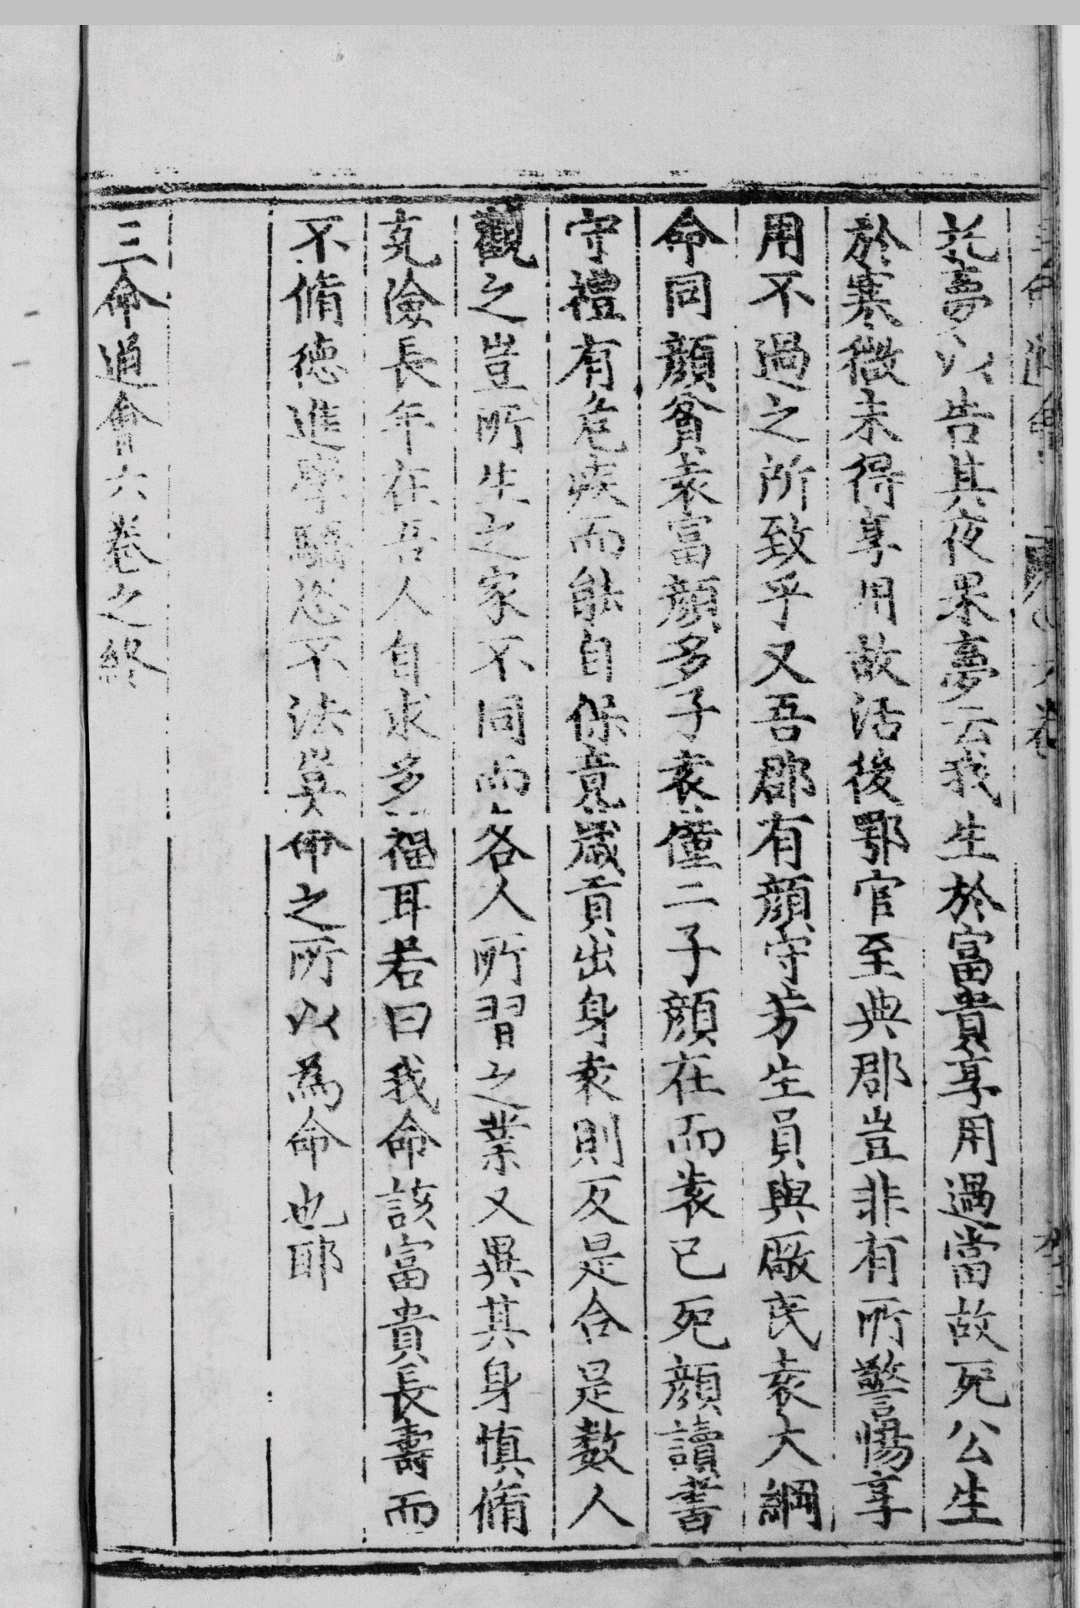 三命通會 六卷
托夢以告其夜果夢云我生於富貴享用過當故死公生
於寒微未得享用故活後鄂官至典郡豈非有所警惕享
用不過之所致乎又吾郡有顔守芳生員與厰民袁大綱
命同顔貧袁富顔多子袁僅二子顔在而袁已死顔讀書
守禮有危疾而能自保竟歳貢出身袁則反是合是数人
觀之豈所生之家不同而各人所習之業又異其身慎脩
克儉長年在吾人自求多福耳若曰我命該富貴長壽而
不脩德進學驕恣不法莫命之所以為命也耶
三命通會六卷之終